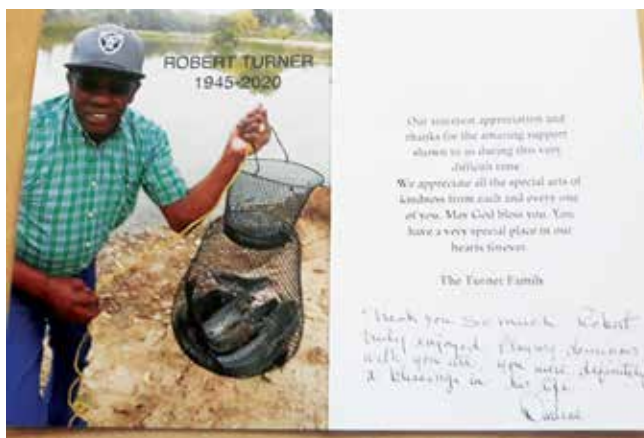 ROBERT TURNER
1945-2020
Our sincerest appreciation and
thanks for the amazing support
shown to us during this very
difficult time.
We appreciate all the special acts of
kindness from each and every one
of you. May God bless you. You
have a very special place in our
hearts forever.
The Turner Family
Thank you so much Robert
truly enjoyed playing dominoes
with you all, you were definitely
a blessings in his life